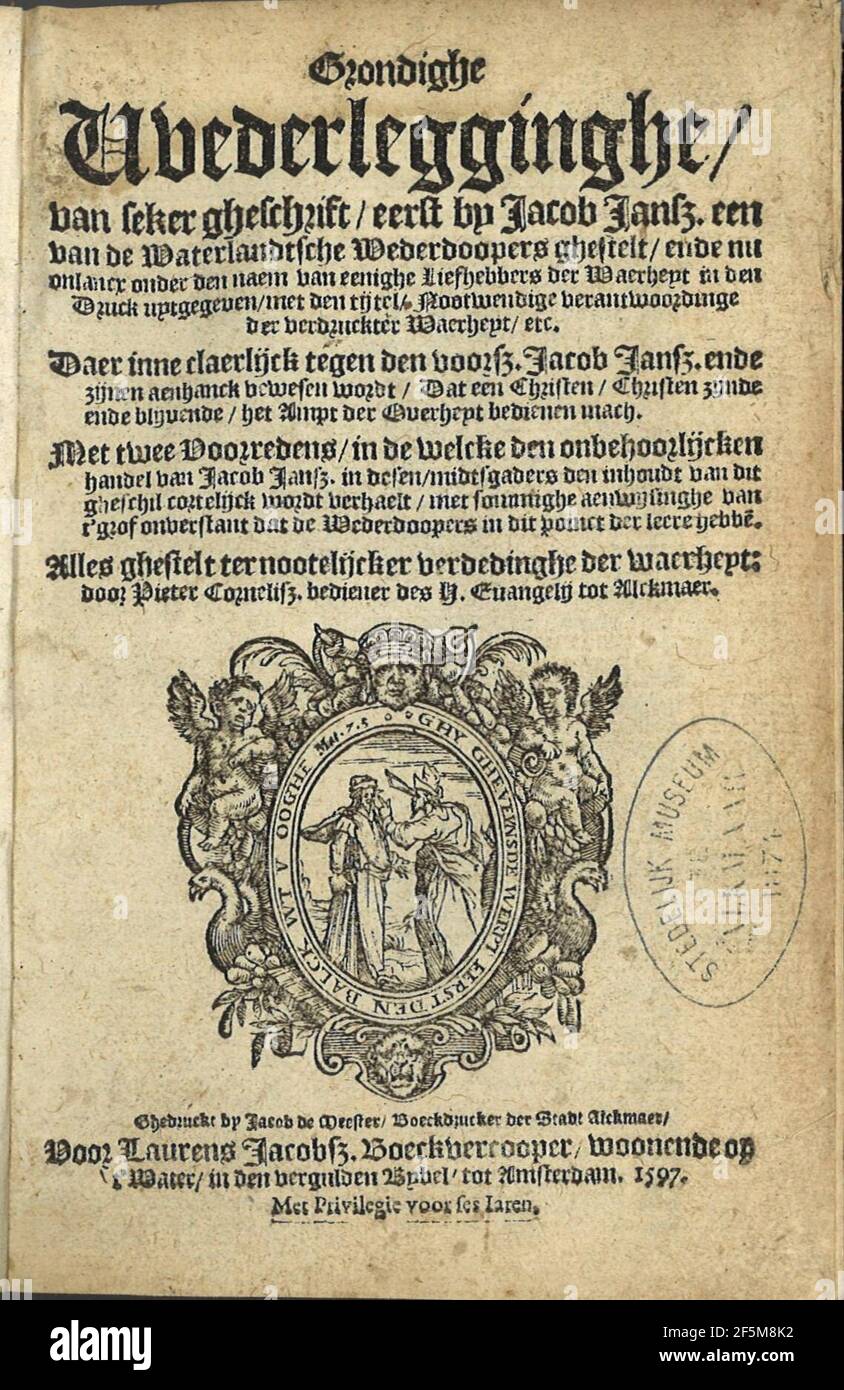 Grondighe
Wvederlegginghe/
van seker gheschrift / eerst by Jacob Jansz. een
van de Waterlandtsche Wederdoopers ghestelt / ende nu
onlancx onder den naem van eenighe Liefhebbers der Waerheyt in den
Druck uytgegeven / met den tijtel / Nootwendige verantwoordinge
der verdruckter Waerheyt / etc.
Daer inne claerlijck tegen den voorsz. Jacob Jansz. ende
zijnen aenhanck bewesen wordt / Dat een Christen / Christen zijnde
ende blijvende / het Ampt der Overheyt bedienen mach.
Met twee Voorredens / in de welcke den onbehoorlijcken
handel van Jacob Jansz. in desen / midtsgaders den inhoudt van dit
gheschil cortelijck wordt verhaelt / met sommighe aenwysinghe van
t'grof onverstant dat de Wederdoopers in dit poinct der leere hebbē.
Alles ghestelt ter nootelijcker verdedinghe der waerheyt:
door Pieter Cornelisz. bediener des H. Euangelij tot Alckmaer.
GHY GHEVEINSDE WERPT EERST DEN BALCK WT V OOGHE Mat. 7. 5
STEDELIJK MUSEUM
ALKMAAR
1874
Ghedruckt by Jacob de Meester / Boeckdrucker der Stadt Alckmaer /
Voor Laurens Jacobsz. Boeckvercooper / woonende op
't Water / in den vergulden Bybel / tot Amsterdam. 1597.
Met Privilegie voor ses Iaren.
alamy
Image ID: 2F5M8K2
www.alamy.com